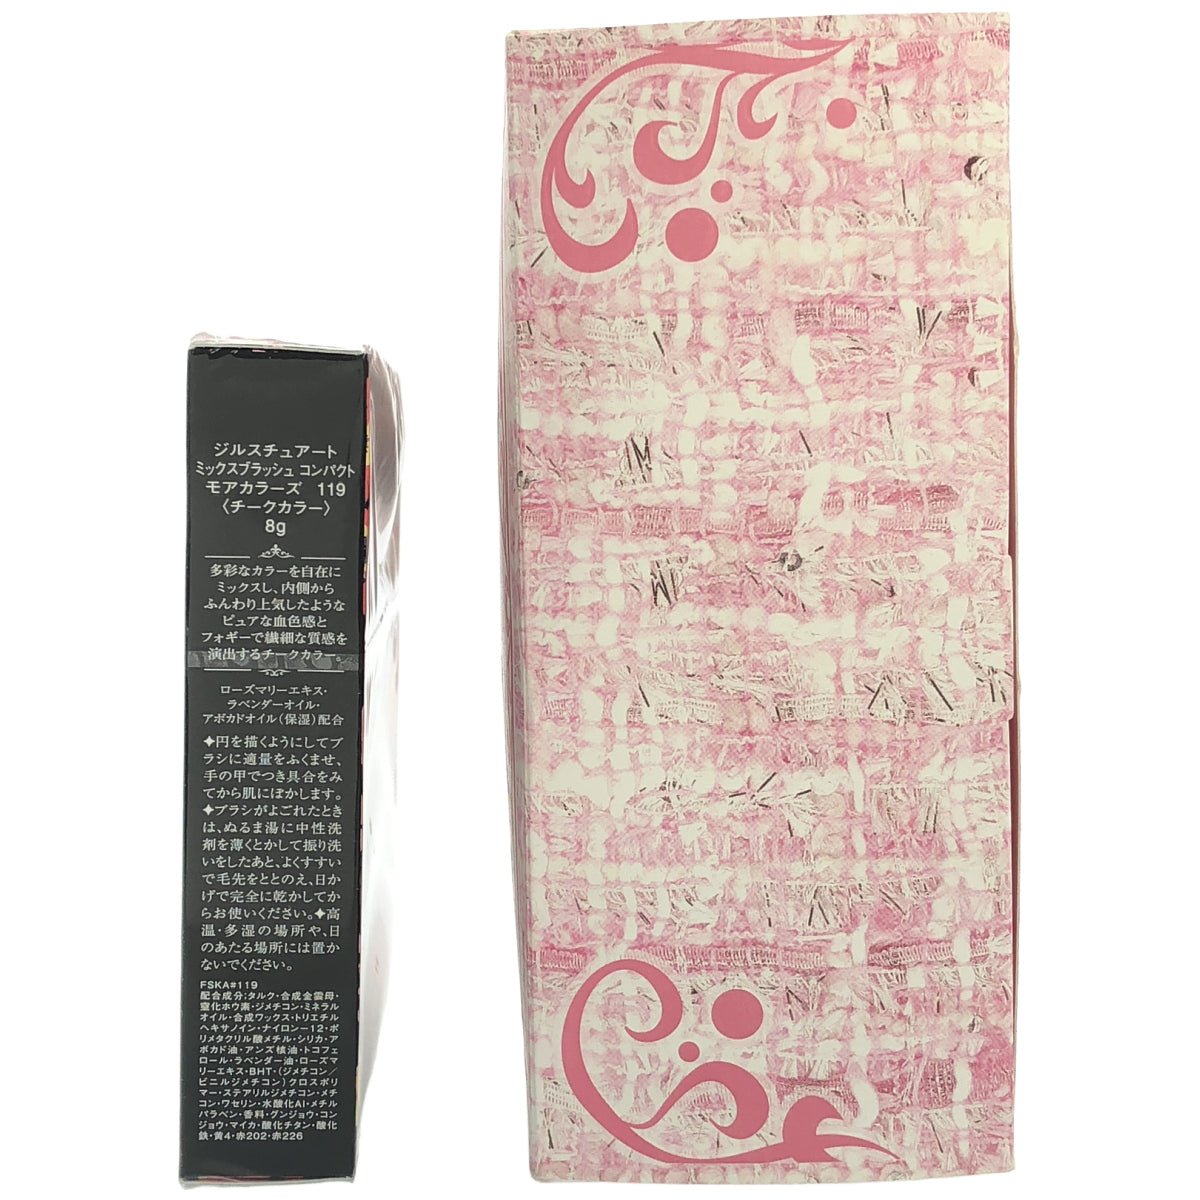 ジルスチュアート
ミックスブラッシュ コンパクト
モアカラーズ 119
〈チークカラー〉
8g
多彩なカラーを自在に
ミックスし、内側から
ふんわり上気したような
ピュアな血色感と
フォギーで繊細な質感を
演出するチークカラー。
ローズマリーエキス・
ラベンダーオイル・
アボカドオイル（保湿）配合
✦円を描くようにしてブ
ラシに適量をふくませ、
手の甲でつき具合をみ
てから肌にぼかします。
✦ブラシがよごれたとき
は、ぬるま湯に中性洗
剤を薄くとかして振り洗
いをしたあと、よくすすい
で毛先をととのえ、日か
げで完全に乾かしてか
らお使いください。✦高
温・多湿の場所や、日
のあたる場所には置か
ないでください。
FSKA#119
配合成分;タルク・合成金雲母・
窒化ホウ素・ジメチコン・ミネラル
オイル・合成ワックス・トリエチル
ヘキサノイン・ナイロン－12・ポ
リメタクリル酸メチル・シリカ・ア
ボカド油・アンズ核油・トコフェ
ロール・ラベンダー油・ローズマ
リーエキス・BHT・(ジメチコン／
ビニルジメチコン)クロスポリ
マー・ステアリルジメチコン・メチ
コン・ワセリン・水酸化Al・メチル
パラベン・香料・グンジョウ・コン
ジョウ・マイカ・酸化チタン・酸化
鉄・黄4・赤202・赤226